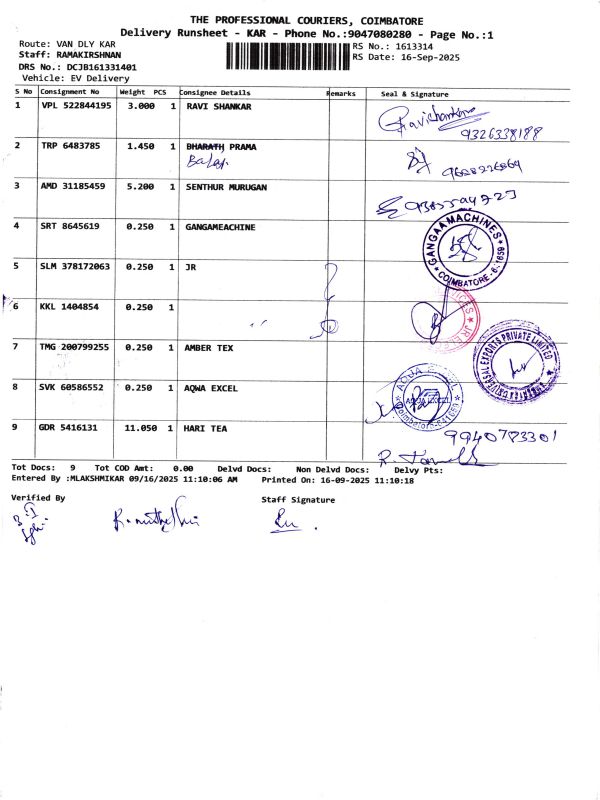 THE PROFESSIONAL COURIERS, COIMBATORE
Delivery Runsheet - KAR - Phone No.:9047080280 - Page No.:1
Route: VAN DLY KAR
Staff: RAMAKIRSHNAN
DRS No.: DCJB161331401
Vehicle: EV Delivery
RS No.: 1613314
RS Date: 16-Sep-2025
S No Consignment No Weight PCS Consignee Details Remarks Seal & Signature
1 VPL 522844195 3.000 1 RAVI SHANKAR Ravishankar
9326338188
2 TRP 6483785 1.450 1 BHARATH PRAMA
Balaji
3 AMD 31185459 5.200 1 SENTHUR MURUGAN
4 SRT 8645619 0.250 1 GANGAMEACHINE
GANGAA MACHINES
COIMBATORE - 6
5 SLM 378172063 0.250 1 JR
6 KKL 1404854 0.250 1
7 TMG 200799255 0.250 1 AMBER TEX
EXPORTS PRIVATE LIMITED
8 SVK 60586552 0.250 1 AQWA EXCEL
AQUA EXCEL
9 GDR 5416131 11.050 1 HARI TEA
9940783301
Tot Docs: 9 Tot COD Amt: 0.00 Delvd Docs: Non Delvd Docs: Delvy Pts:
Entered By :MLAKSHMIKAR 09/16/2025 11:10:06 AM Printed On: 16-09-2025 11:10:18
Verified By
Staff Signature